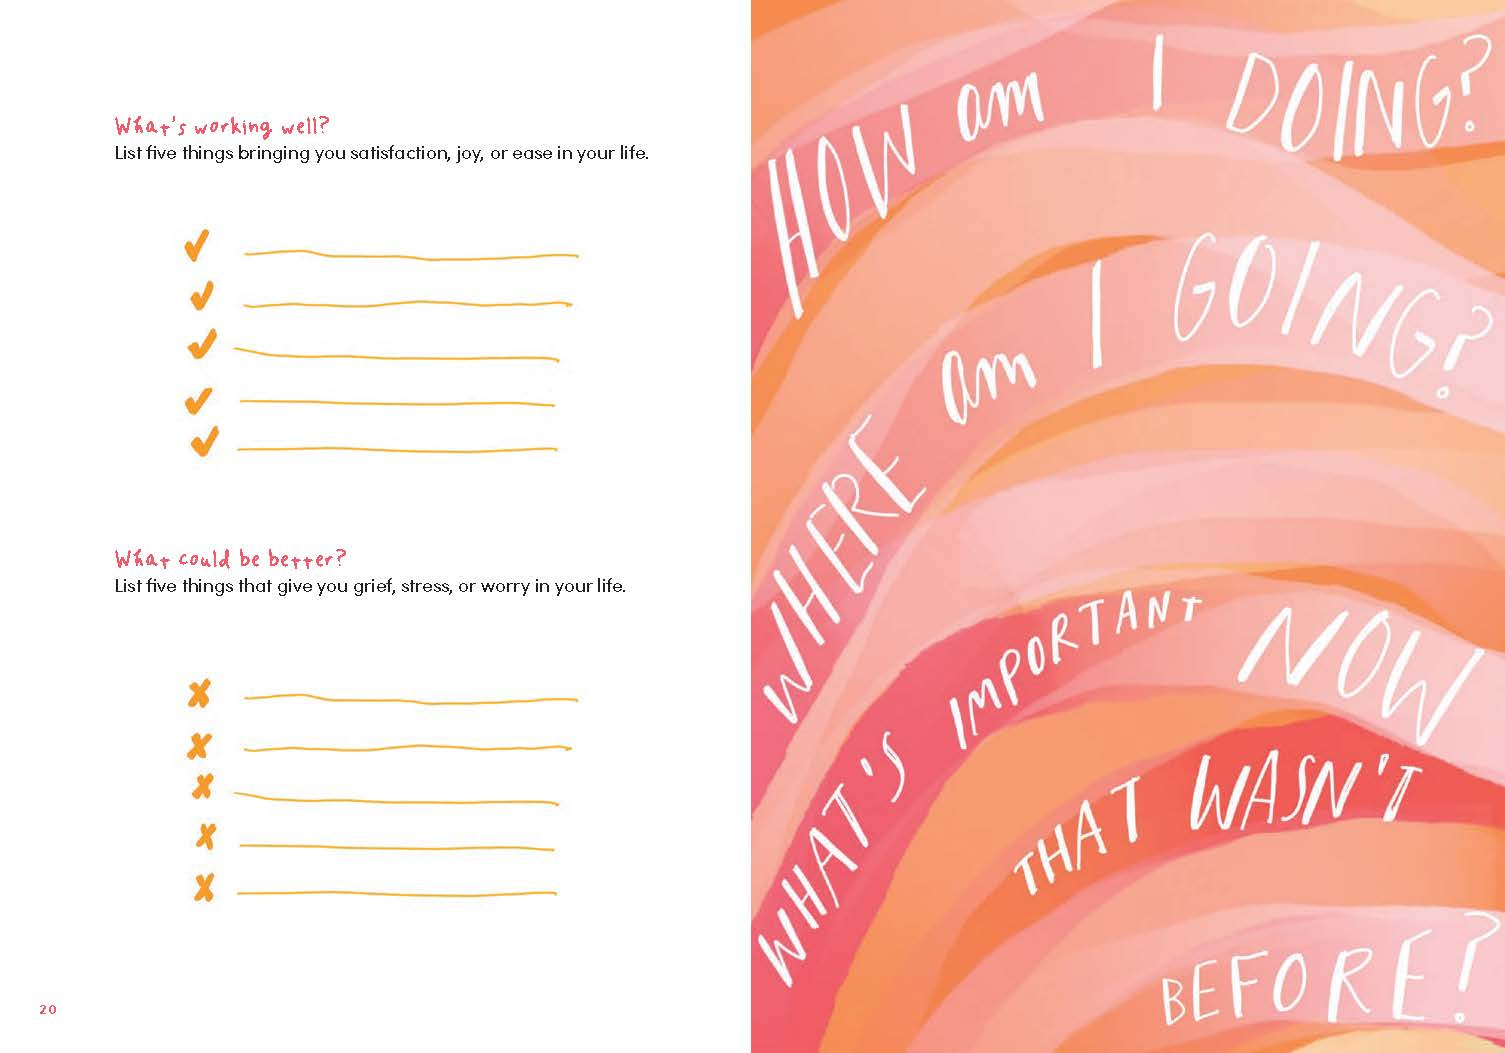 What's working well?
List five things bringing you satisfaction, joy, or ease in your life.
What could be better?
List five things that give you grief, stress, or worry in your life.
20
HOW am I DOING?
WHERE am I GOING?
WHAT'S IMPORTANT NOW
THAT WASN'T
BEFORE?